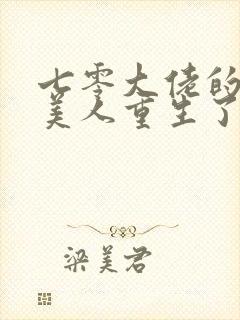 七零大佬的
美人重生了
梁美君